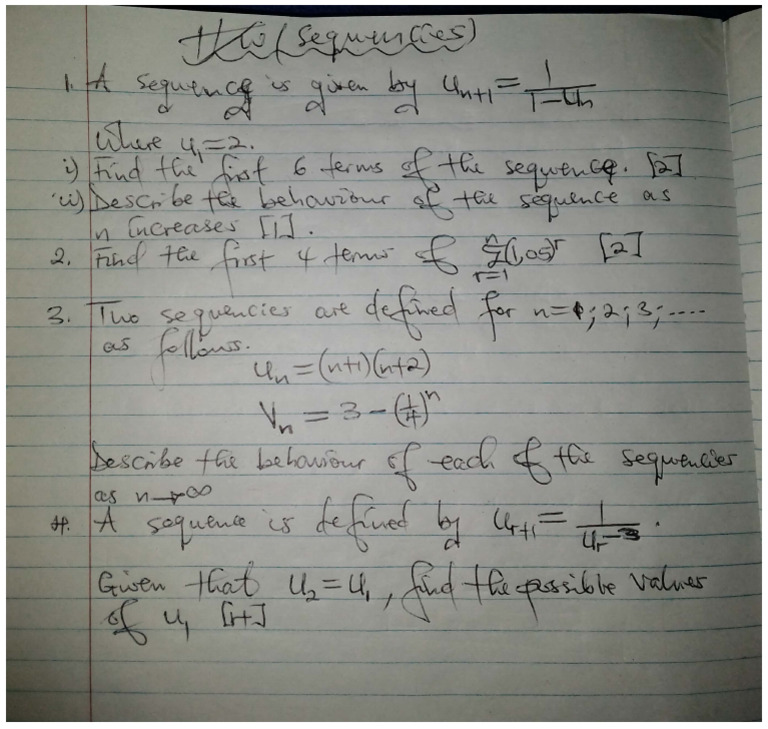 H/W (sequencies)
1. A sequence is given by u_{n+1} = 1/(1-u_n)
Where u_1=2.
i) Find the first 6 terms of the sequence. [2]
ii) Describe the behaviour of the sequence as
n increases [1].
2. Find the first 4 terms of \sum_{r=1}^{n}(1,05)^r [2]
3. Two sequencies are defined for n=1; 2; 3; ....
as follows.
u_n = (n+1)(n+2)
V_n = 3 - (1/4)^n
Describe the behaviour of each of the sequencies
as n→∞
4. A sequence is defined by u_{r+1} = 1/(u_r-3).
Given that u_2 = u_1, find the possible values
of u_1 [4]